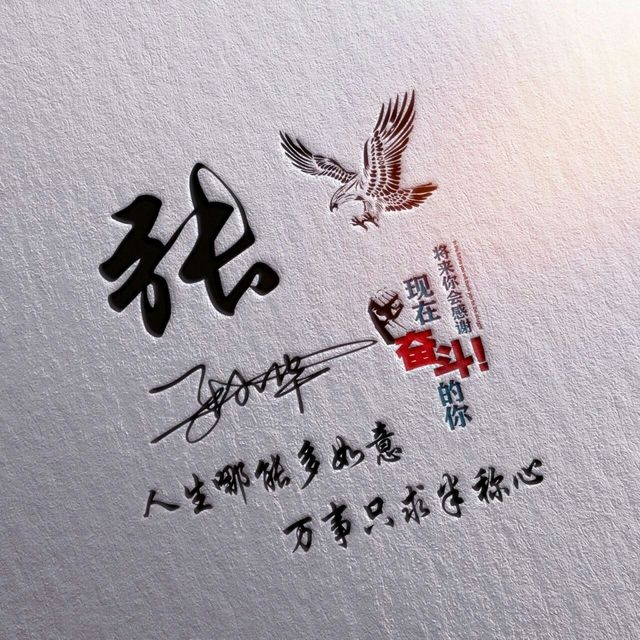 张
将来你会感谢
现在
奋斗!
的你
人生哪能多如意
万事只求半称心